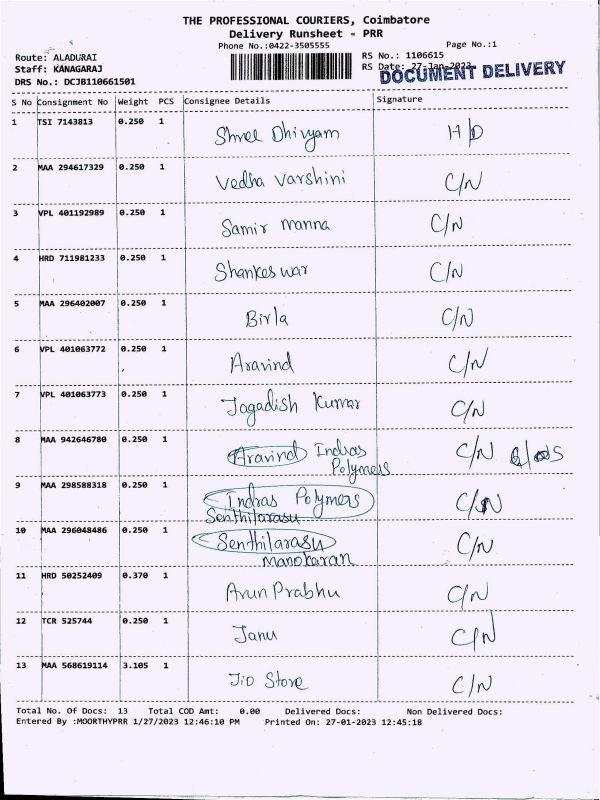 THE PROFESSIONAL COURIERS, Coimbatore
Delivery Runsheet - PRR
Phone No.:0422-3505555 Page No.:1
Route: ALADURAI RS No.: 1106615
Staff: KANAGARAJ RS Date: 27-Jan-2023
DRS No.: DCJB110661501 DOCUMENT DELIVERY
S No Consignment No Weight PCS Consignee Details Signature
1 TSI 7143813 0.250 1 Shree Dhivyam H/D
2 MAA 294617329 0.250 1 Vedha Varshini C/N
3 VPL 401192989 0.250 1 Samir manna C/N
4 HRD 711981233 0.250 1 Shankeswar C/N
5 MAA 296402007 0.250 1 Birla C/N
6 VPL 401063772 0.250 1 Aravind C/N
7 VPL 401063773 0.250 1 Jagadish Kumar C/N
8 MAA 942646780 0.250 1 Aravind Indras C/N
Polymers
9 MAA 298588318 0.250 1 Indras Polymers C/N
Senthilarasu
10 MAA 296048486 0.250 1 Senthilarasu C/N
Manokaran
11 HRD 50252409 0.370 1 Arun Prabhu C/N
12 TCR 525744 0.250 1 Janu C/N
13 MAA 568619114 3.105 1 Jio Store C/N
Total No. Of Docs: 13 Total COD Amt: 0.00 Delivered Docs: Non Delivered Docs:
Entered By :MOORTHYPRR 1/27/2023 12:46:10 PM Printed On: 27-01-2023 12:45:18